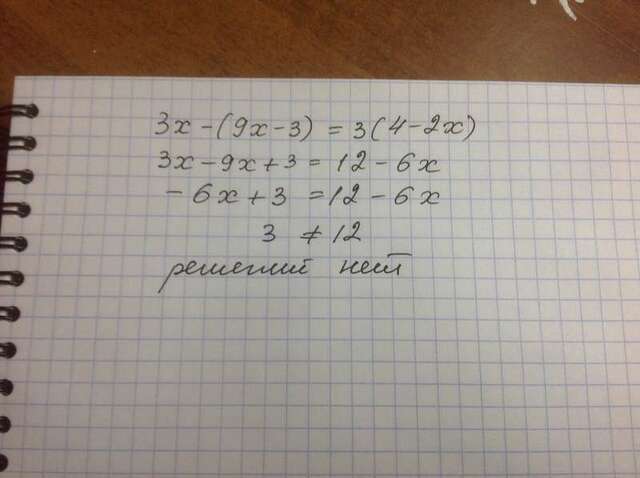 3x - (9x - 3) = 3(4 - 2x)
3x - 9x + 3 = 12 - 6x
- 6x + 3 = 12 - 6x
3 ≠ 12
решений нет